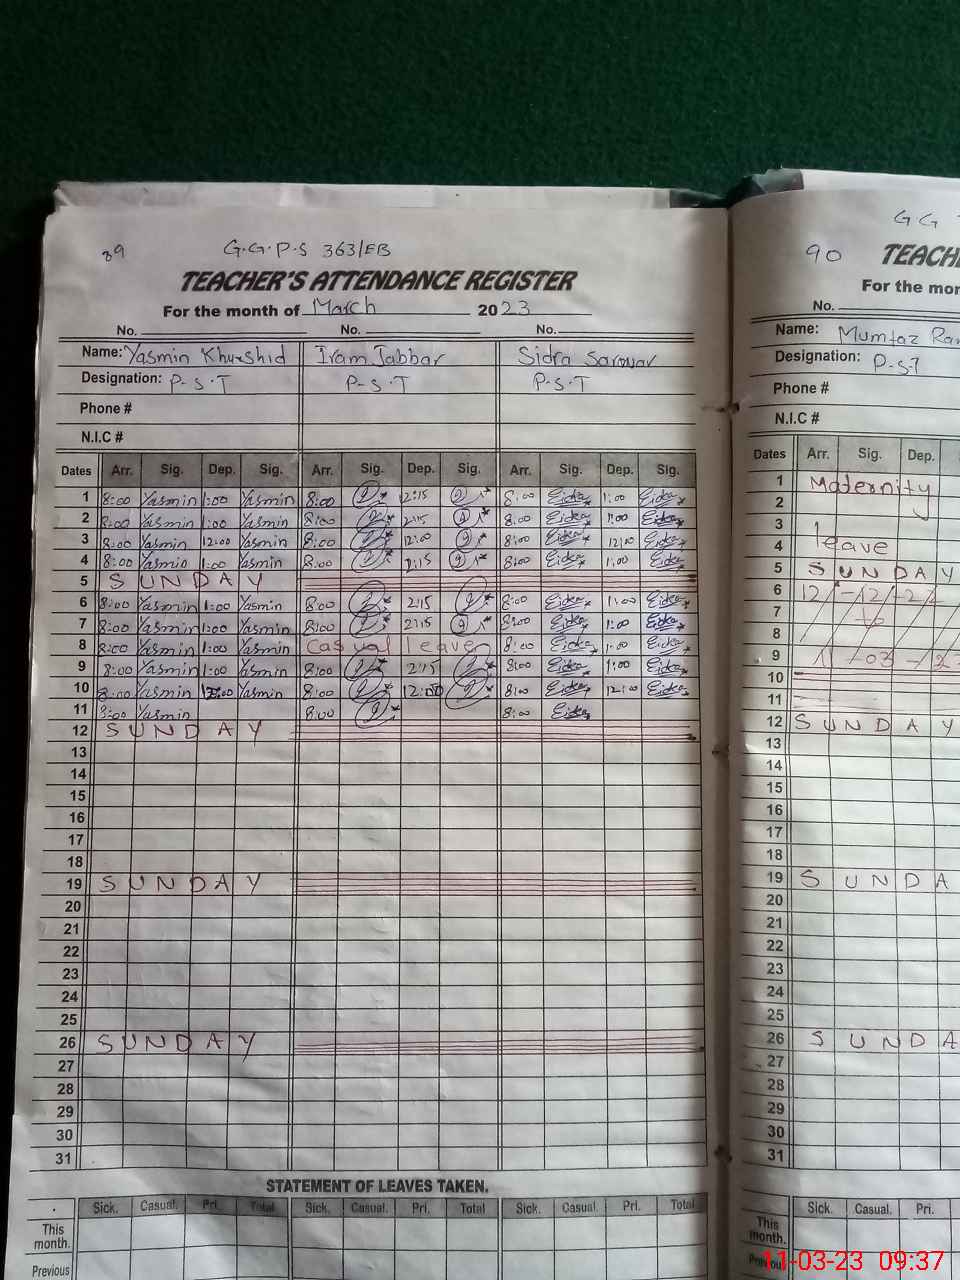 89 G.G.P.S 363/EB
TEACHER'S ATTENDANCE REGISTER
For the month of March 2023
No. No. No.
Name: Yasmin Khurshid Iram Jabbar Sidra Sarowar
Designation: P-S.T P-S.T P-S.T
Phone #
N.I.C #
Dates Arr. Sig. Dep. Sig. Arr. Sig. Dep. Sig. Arr. Sig. Dep. Sig.
1 8:00 Yasmin 1:00 Yasmin 8:00 12:15 8:00 1:00
2 8:00 Yasmin 1:00 Yasmin 8:00 2:15 8:00 1:00
3 8:00 Yasmin 12:00 Yasmin 8:00 12:00 8:00 12:00
4 8:00 Yasmin 1:00 Yasmin 8:00 2:15 8:00 1:00
5 SUNDAY
6 8:00 Yasmin 1:00 Yasmin 8:00 2:15 8:00 1:00
7 8:00 Yasmin 1:00 Yasmin 8:00 2:15 8:00 1:00
8 8:00 Yasmin 1:00 Yasmin Casual leave 8:00 1:00
9 8:00 Yasmin 1:00 Yasmin 8:00 2:15 8:00 1:00
10 8:00 Yasmin Yasmin 8:00 12:00 8:00 12:00
11 8:00 Yasmin 8:00 8:00
12 SUNDAY
13
14
15
16
17
18
19 SUNDAY
20
21
22
23
24
25
26 SUNDAY
27
28
29
30
31
STATEMENT OF LEAVES TAKEN.
Sick. Casual. Pri. Total Sick. Casual. Pri. Total Sick. Casual. Pri. Total
This month.
Previous
G G
90 TEACH
For the mo
No.
Name: Mumtaz
Designation: P-S-T
Phone #
N.I.C #
Dates Arr. Sig. Dep.
1 Maternity
2
3
4 leave
5 SUNDAY
6 12-12-22
7 to
8
9 11-03-23
10
11
12 SUNDAY
13
14
15
16
17
18
19 SUNDA
20
21
22
23
24
25
26 SUNDA
27
28
29
30
31
Sick. Casual. Pri.
This month.
11-03-23 09:37